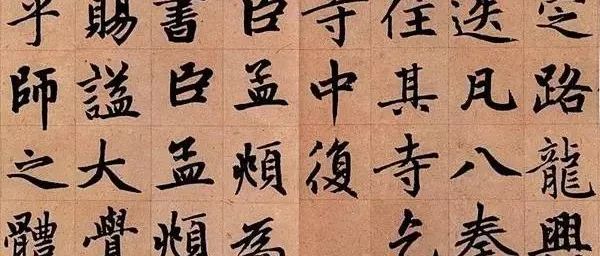 定路龍興
迭凡八奏
住其寺乞
寺中復
臣孟頫為
書臣孟頫
賜謚大覺
乎師之體